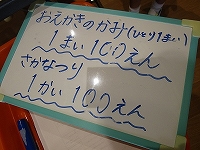 おえかきのかみ(ひとり1まい)
1まい100えん
さかなつり
1かい100えん